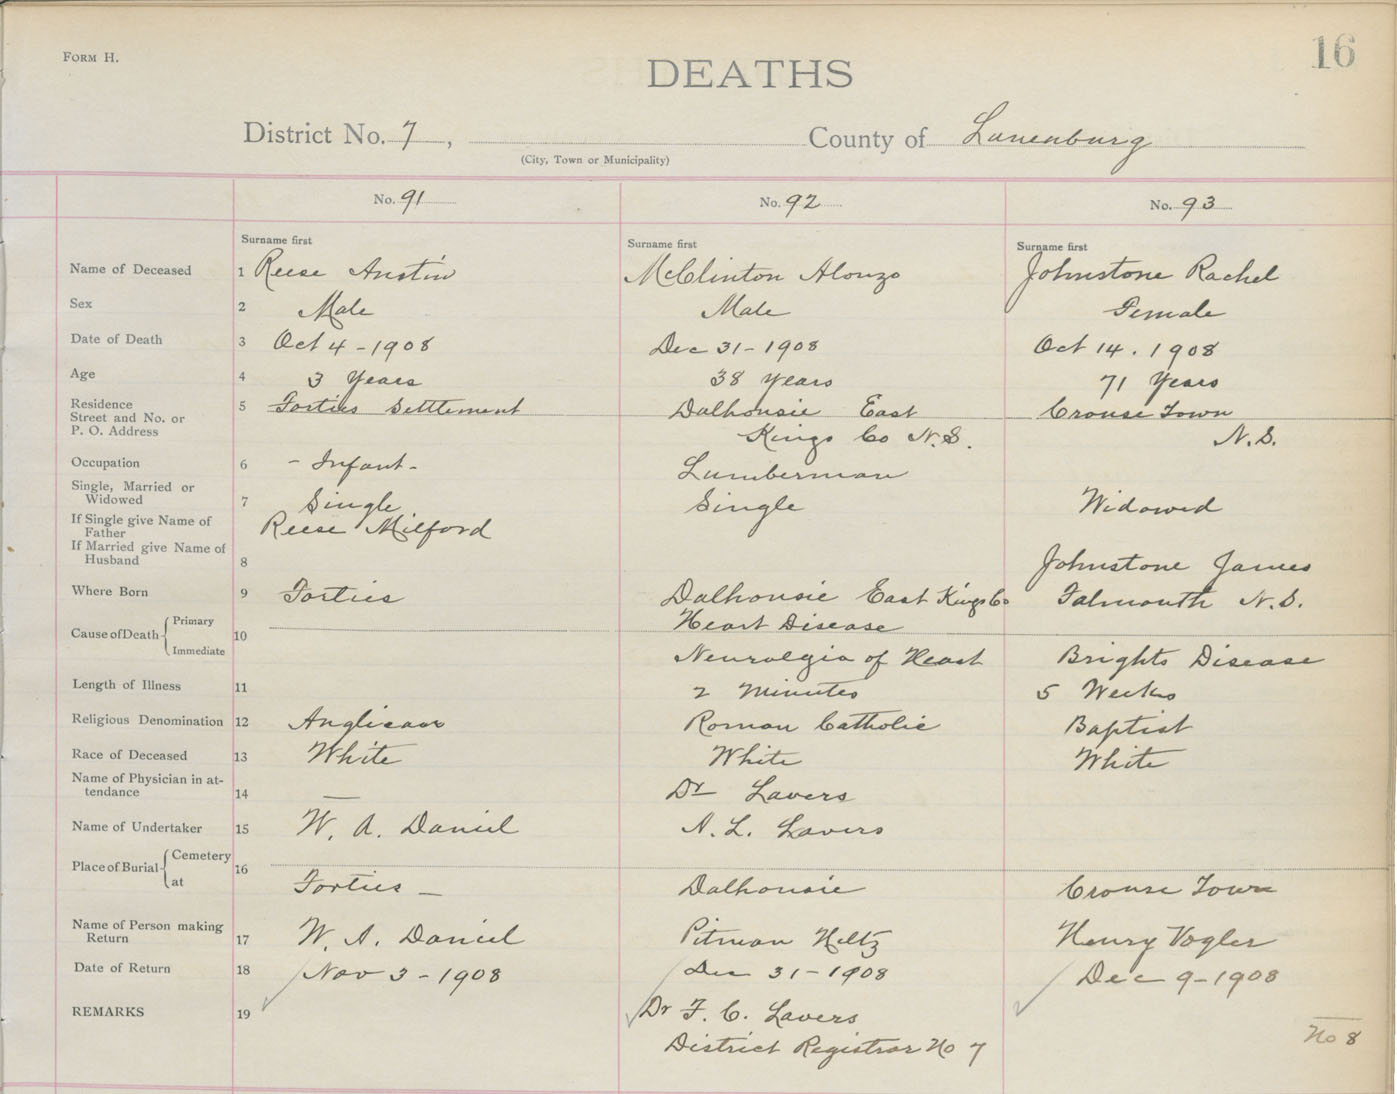 FORM H.
16
DEATHS
District No. 7, County of Lunenburg
(City, Town or Municipality)
No. 91 No. 92 No. 93
Surname first Surname first Surname first
Name of Deceased 1 Reese Austin McClinton Alonzo Johnstone Rachel
Sex 2 Male Male Female
Date of Death 3 Oct 4 - 1908 Dec 31 - 1908 Oct 14. 1908
Age 4 3 Years 38 years 71 Years
Residence 5 Forties Settlement Dalhousie East Crouse Town
Street and No. or
P. O. Address Kings Co N.S. N.S.
Occupation 6 - Infant - Lumberman
Single, Married or
Widowed 7 Single Single Widowed
If Single give Name of Reese Milford
Father
If Married give Name of
Husband 8 Johnstone James
Where Born 9 Forties Dalhousie East Kings Co Falmouth N.S.
Cause of Death { Primary 10 Heart Disease
Immediate Neuralgia of Heart Brights Disease
Length of Illness 11 2 minutes 5 Weeks
Religious Denomination 12 Anglican Roman Catholic Baptist
Race of Deceased 13 White White White
Name of Physician in at-
tendance 14 — Dr Lavers
Name of Undertaker 15 W. A. Daniel A. L. Lavers
Place of Burial { Cemetery 16
at Forties — Dalhousie Crouse Town
Name of Person making
Return 17 W. A. Daniel Pitman Heltz Henry Vogler
Date of Return 18 Nov 3 - 1908 Dec 31 - 1908 Dec 9 - 1908
REMARKS 19 Dr F. C. Lavers
No 8
District Registrar No 7